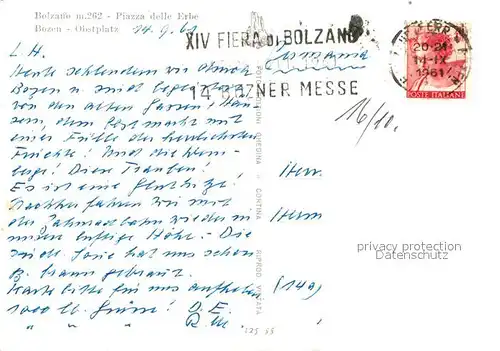 Bolzano m.262 - Piazza delle Erbe
Bozen - Obstplatz 14.9.61
XIV FIERA DI BOLZANO
14. BOZNER MESSE
20-21
14-IX
1961
POSTE ITALIANE
16/10.
L. H.
Heute schlendern wir durch
Bozen u. sind
von den alten Gassen, Häu-
sern, dem Obstmarkt mit
einer Fülle der herrlichsten
Früchte! Und die Wein-
berge! Diese Trauben!
Es ist eine Gluthitze!
Nachher fahren wir mit
der Zahnradbahn wieder in
unsere luftige Höhe. - Die
hat uns schon
braun gebrannt.
Karte bitte für uns aufheben
1000 lb. Grüsse! D. E.
" " " R. M.
Herr
Herm
(14a)
privacy protection
Datenschutz
GHEDINA - CORTINA
RIPROD. VIETATA
125 55